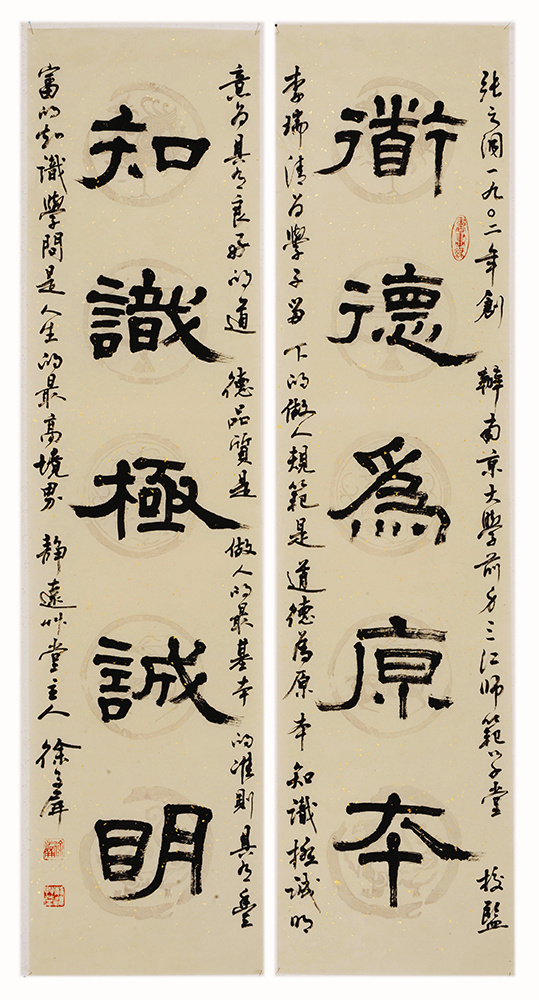 張之洞一九〇二年創辦南京大學前身三江師範學堂校監
衜德爲原本
李瑞清为學子留下的做人規範是道德為原本知識極誠明
意为具有良好的道德品質是做人的最基本的准則具有豐
知識極誠眀
富的知識學問是人生的最高境界靜遠艸堂主人徐